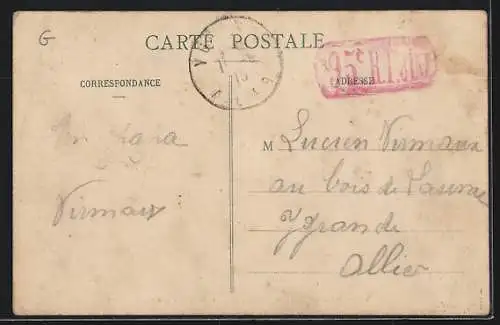 G
CARTE POSTALE
CORRESPONDANCE
ADRESSE
95e R.I.
Virmaux
M Lucien Virmaux
au bois de
Ygrande
Allier